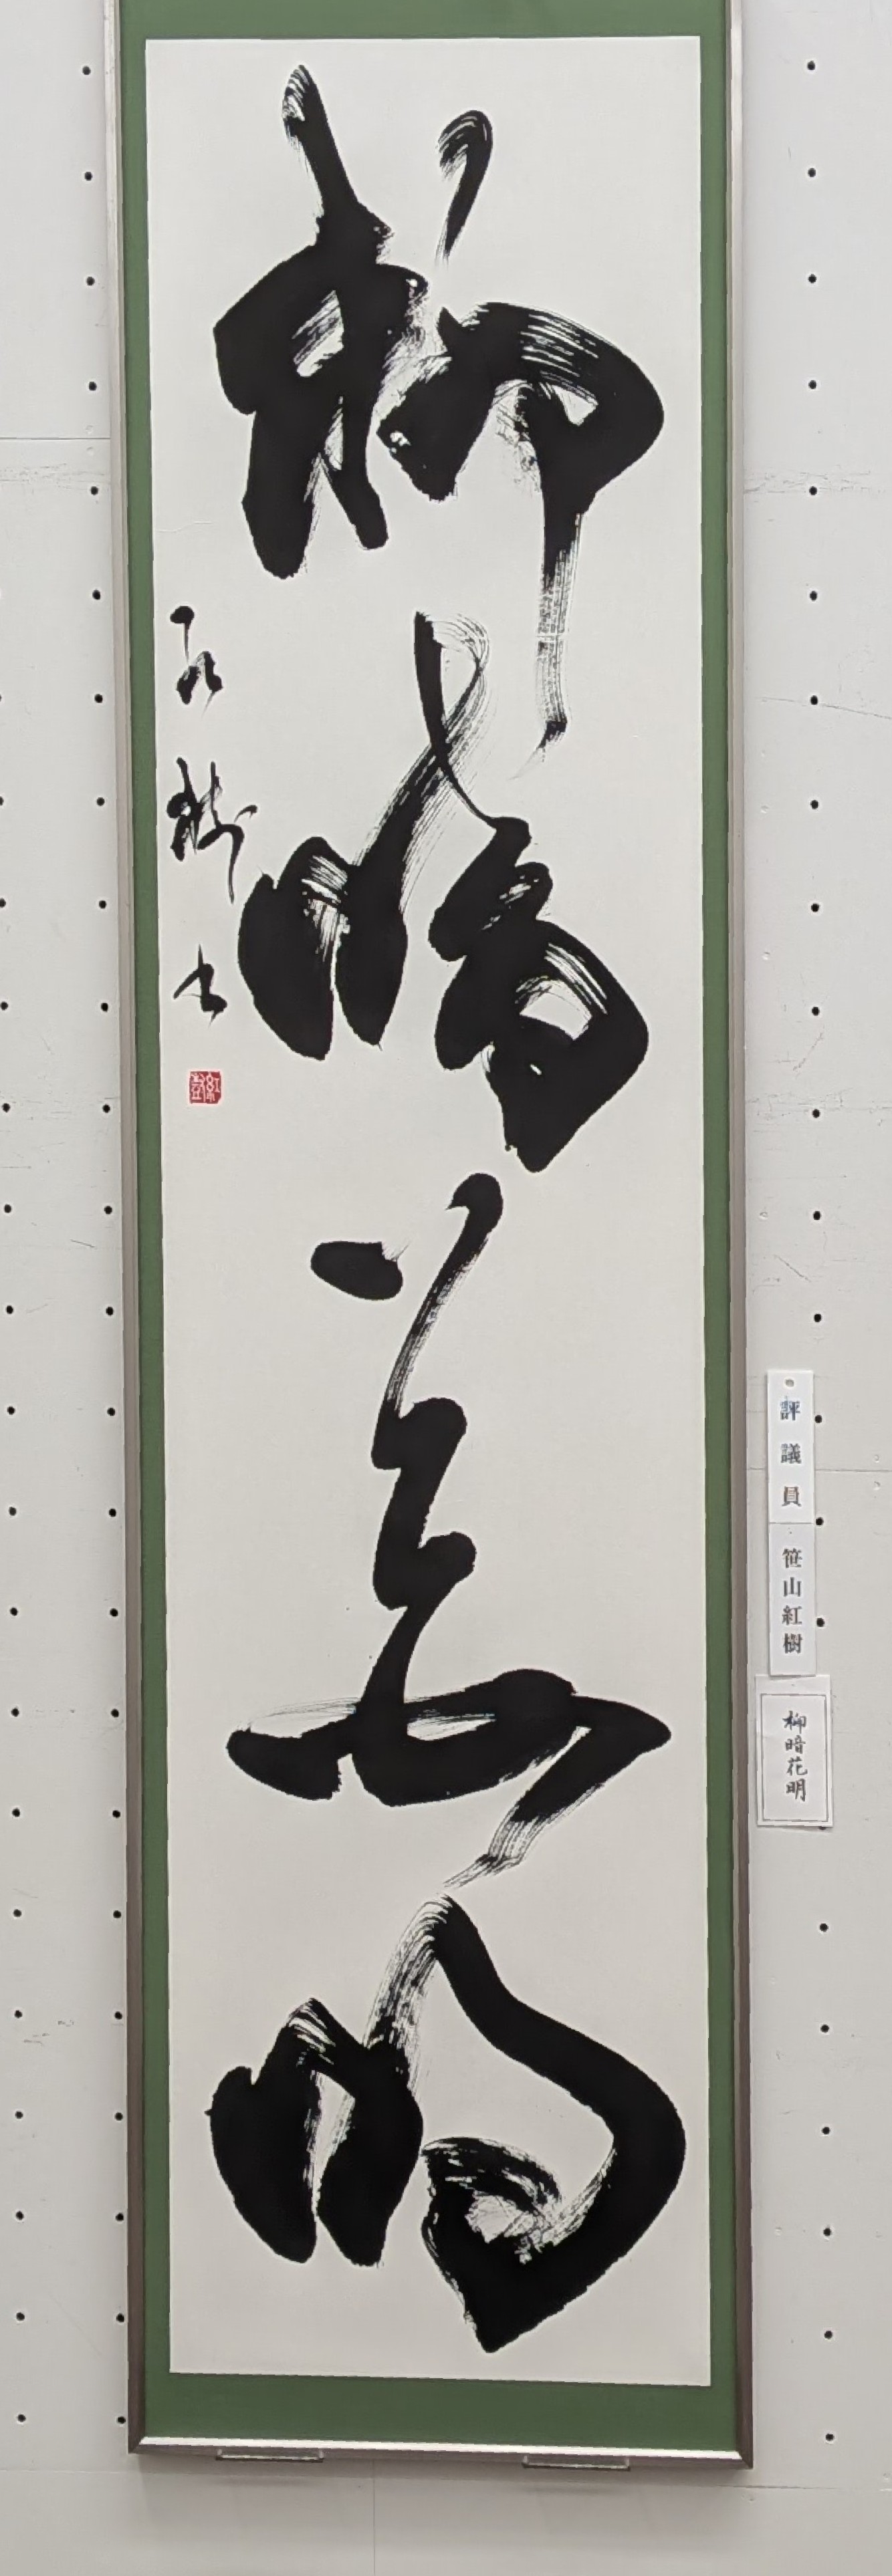 柳暗花明
紅樹書
評議員
笹山紅樹
柳暗花明